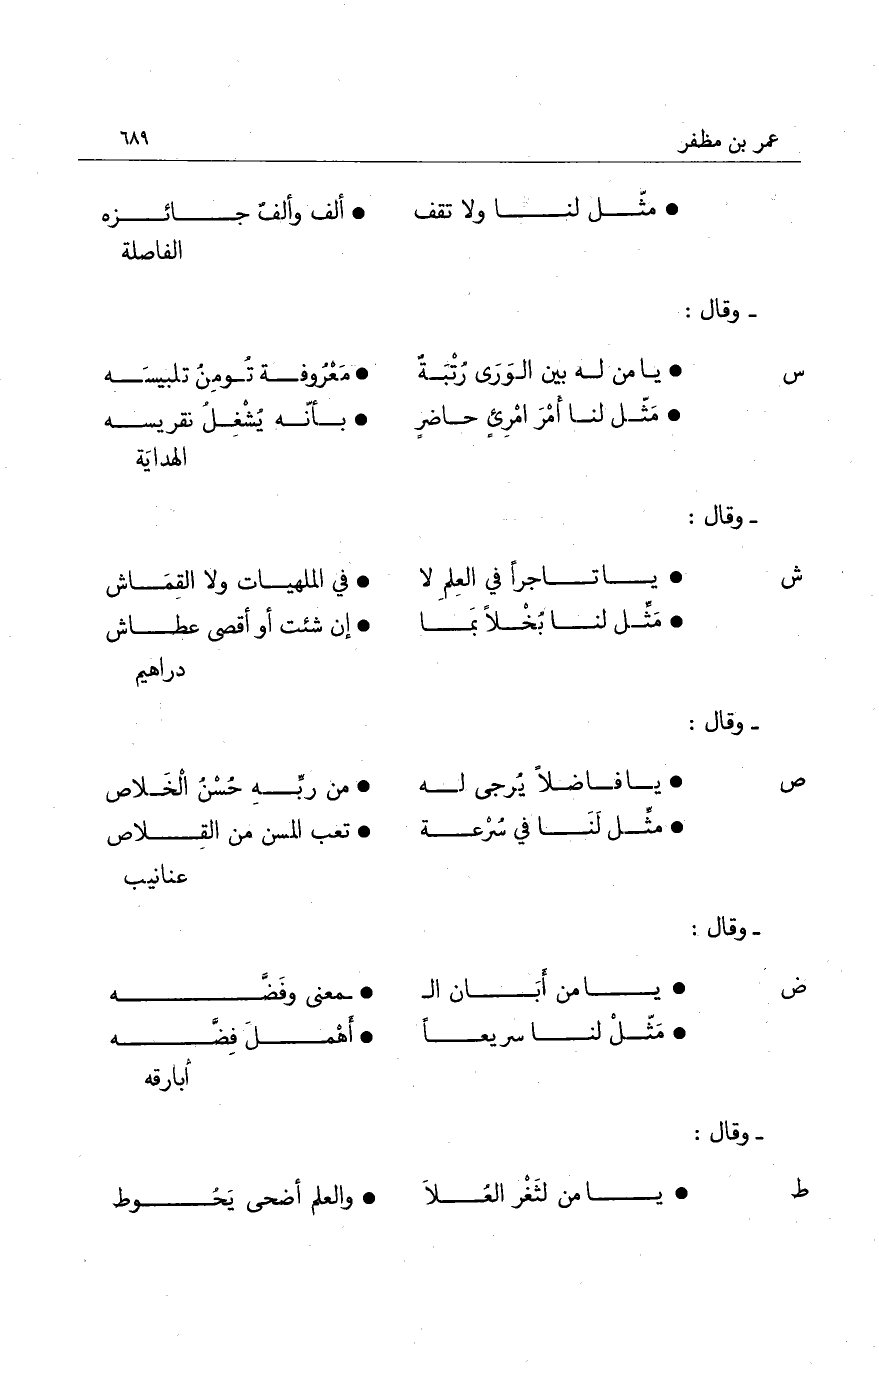 عمر بن مظفر ٦٨٩
● مثّل لنا ولا تقف ● ألف وألفٌ جائزه
الفاصلة
ـ وقال :
س ● يا من له بين الوَرَى رُتْبَةٌ ● مَعْرُوفة تُومِنُ تلبيسَه
● مَثّل لنا أمْرَ امْرِئٍ حاضرٍ ● بأنّه يُشْغِلُ نقريسه
الهدايَة
ـ وقال :
ش ● يا تاجراً في العِلمِ لا ● في الملهيات ولا القمَاش
● مَثِّل لنا بُخْلاً بَما ● إن شئت أو أقصى عطاش
دراهيم
ـ وقال :
ص ● يا فاضلاً يُرجى له ● من ربِّهِ حُسْنُ الْخَلاص
● مثِّل لَنَا في سُرْعة ● تعب المسن من القِلاص
عنانيب
ـ وقال :
ض ● يا من أَبَان الـ ● ـمعنى وفَضَّه
● مَثّلْ لنا سريعاً ● أَهْملَ فِضَّه
أبارقه
ـ وقال :
ط ● يا من لثَغْر العُلاَ ● والعلم أضحى يَحُوط